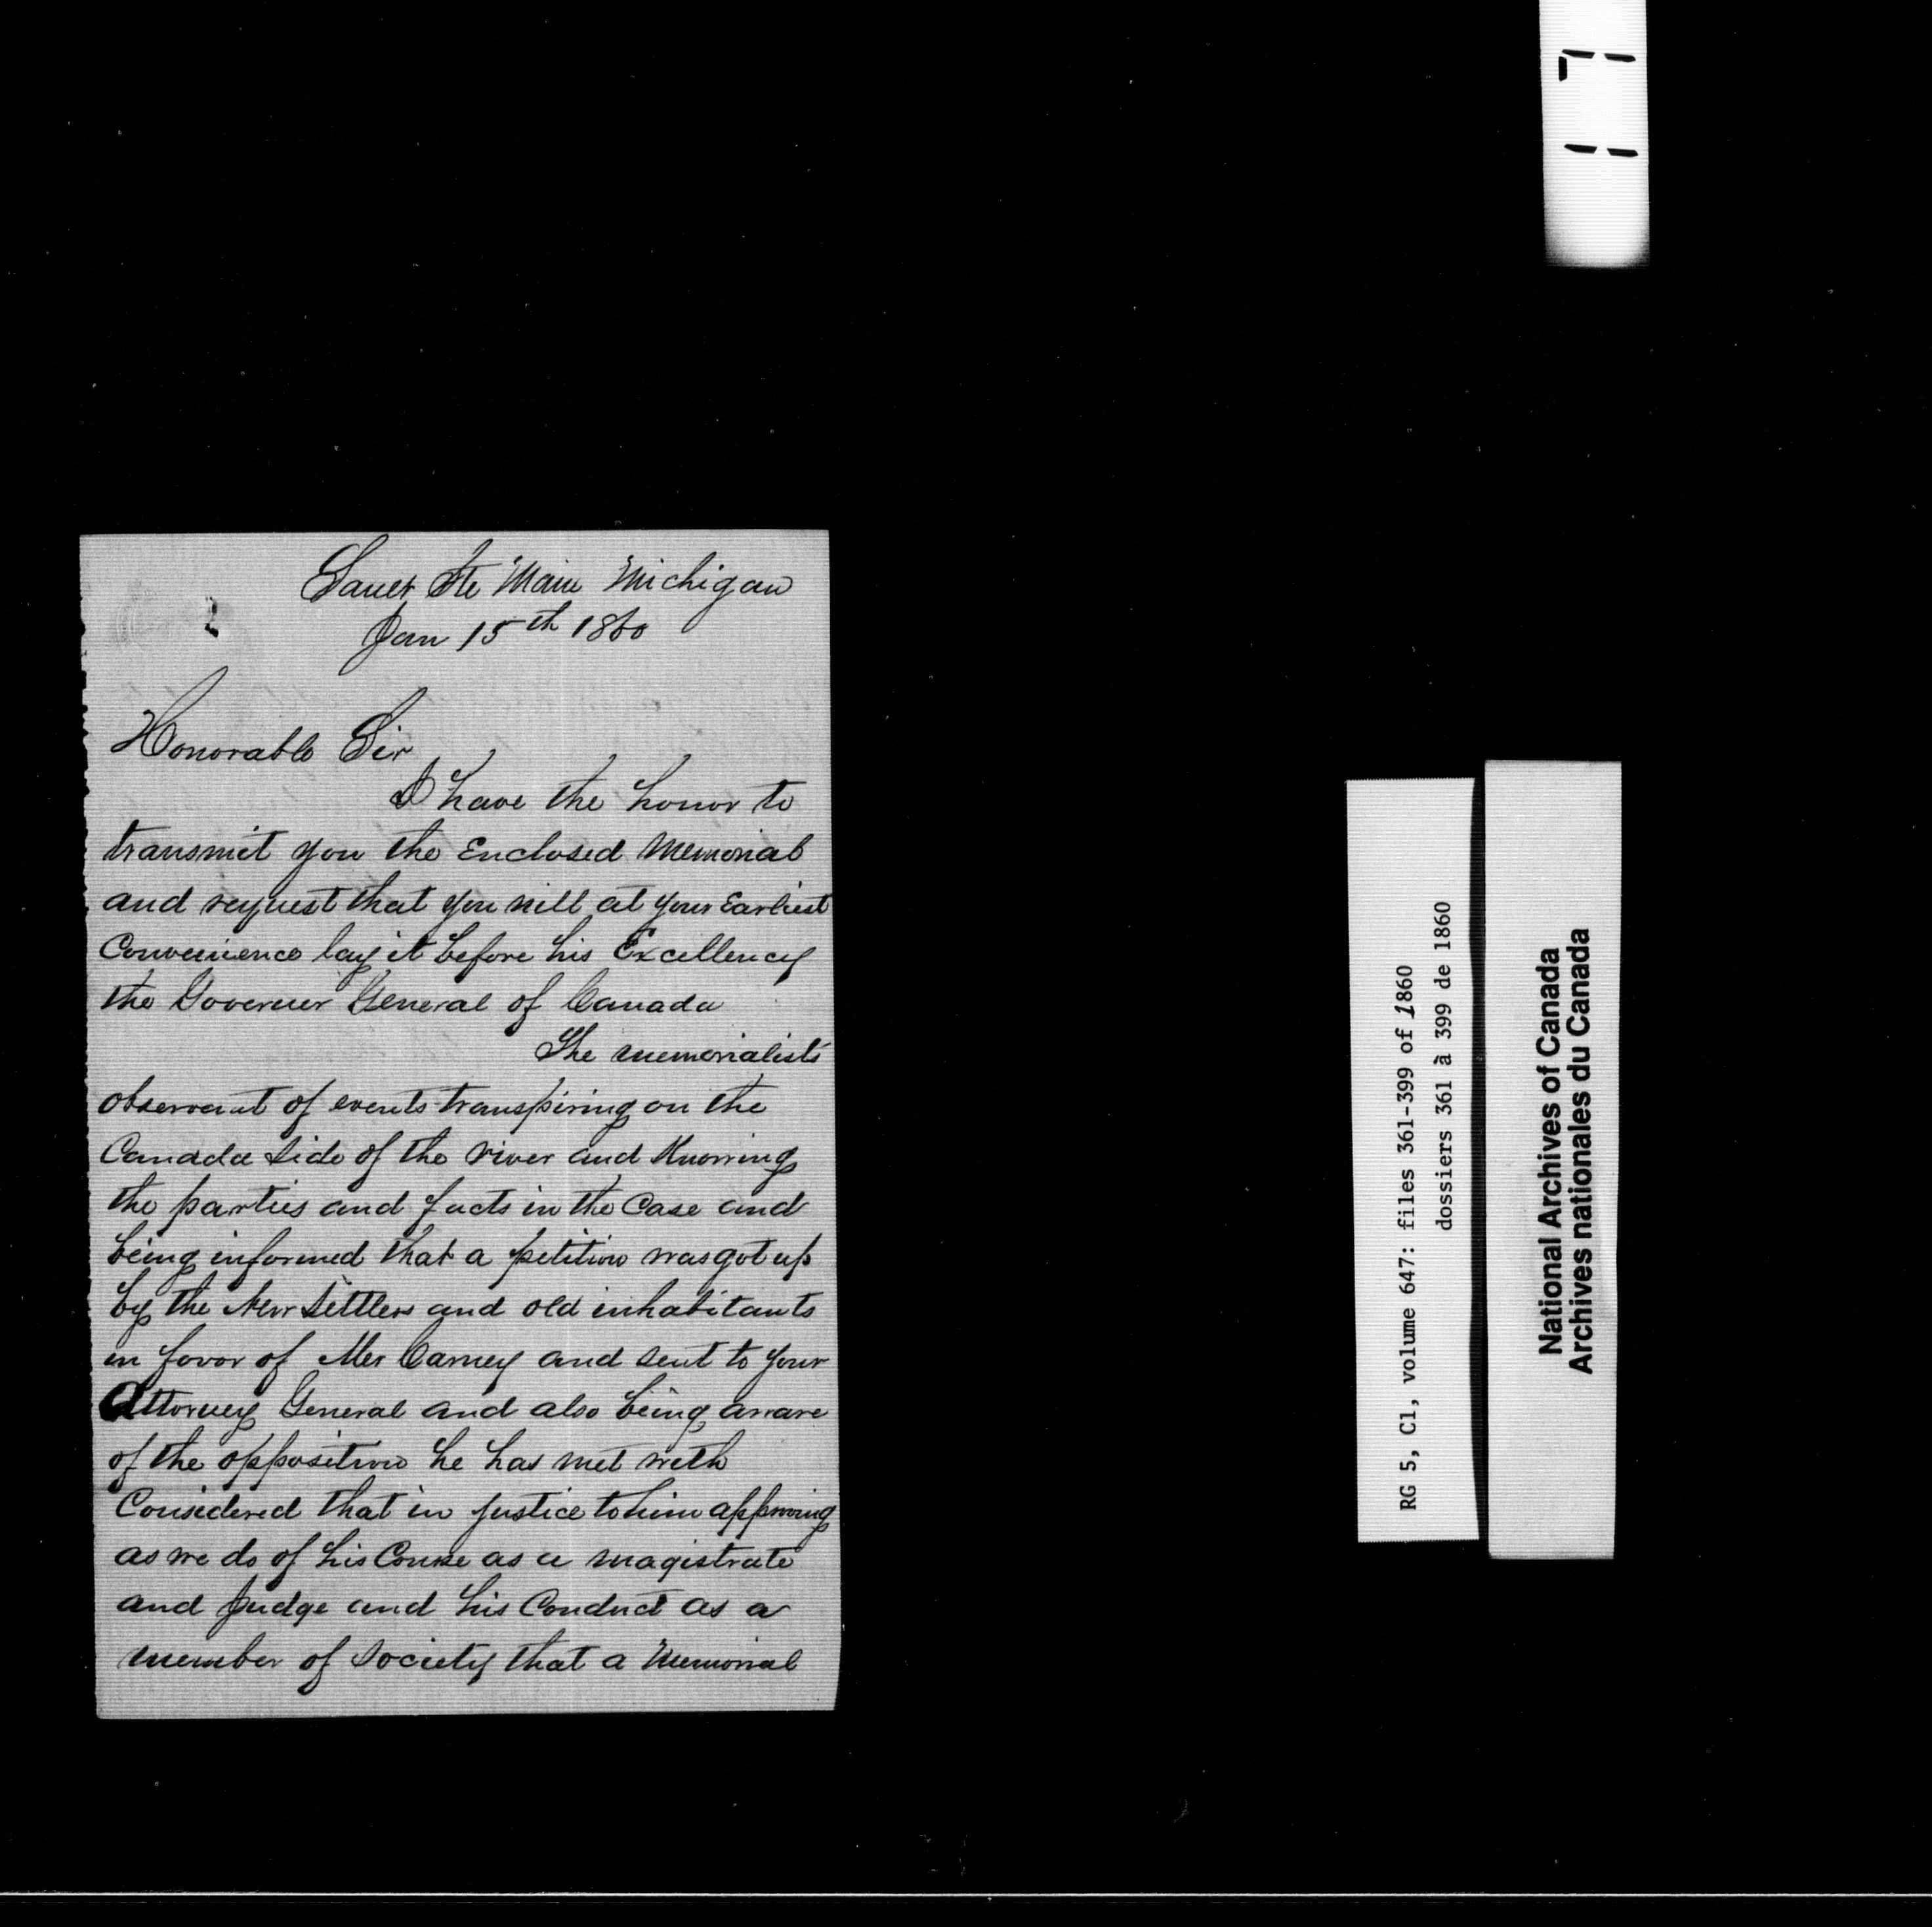 Sault Ste Marie Michigan
Jan 15th 1860
Honorable Sir
I have the honor to
transmit you the Enclosed Memorial
and request that you will at your Earliest
Convenience lay it before his Excellency
the Governer General of Canada
The memorialists
observant of events transpiring on the
Canada Side of the river and Knowing
the parties and facts in the Case and
being informed that a petition was got up
by the New Settlers and old inhabitants
in favor of Mr Carney and sent to your
Attorney General and also being aware
of the opposition he has met with
Considered that in justice to him approving
as we do of his Course as a magistrate
and Judge and his Conduct as a
member of Society that a Memorial
RG 5, C1, volume 647: files 361-399 of 1860
dossiers 361 à 399 de 1860
National Archives of Canada
Archives nationales du Canada